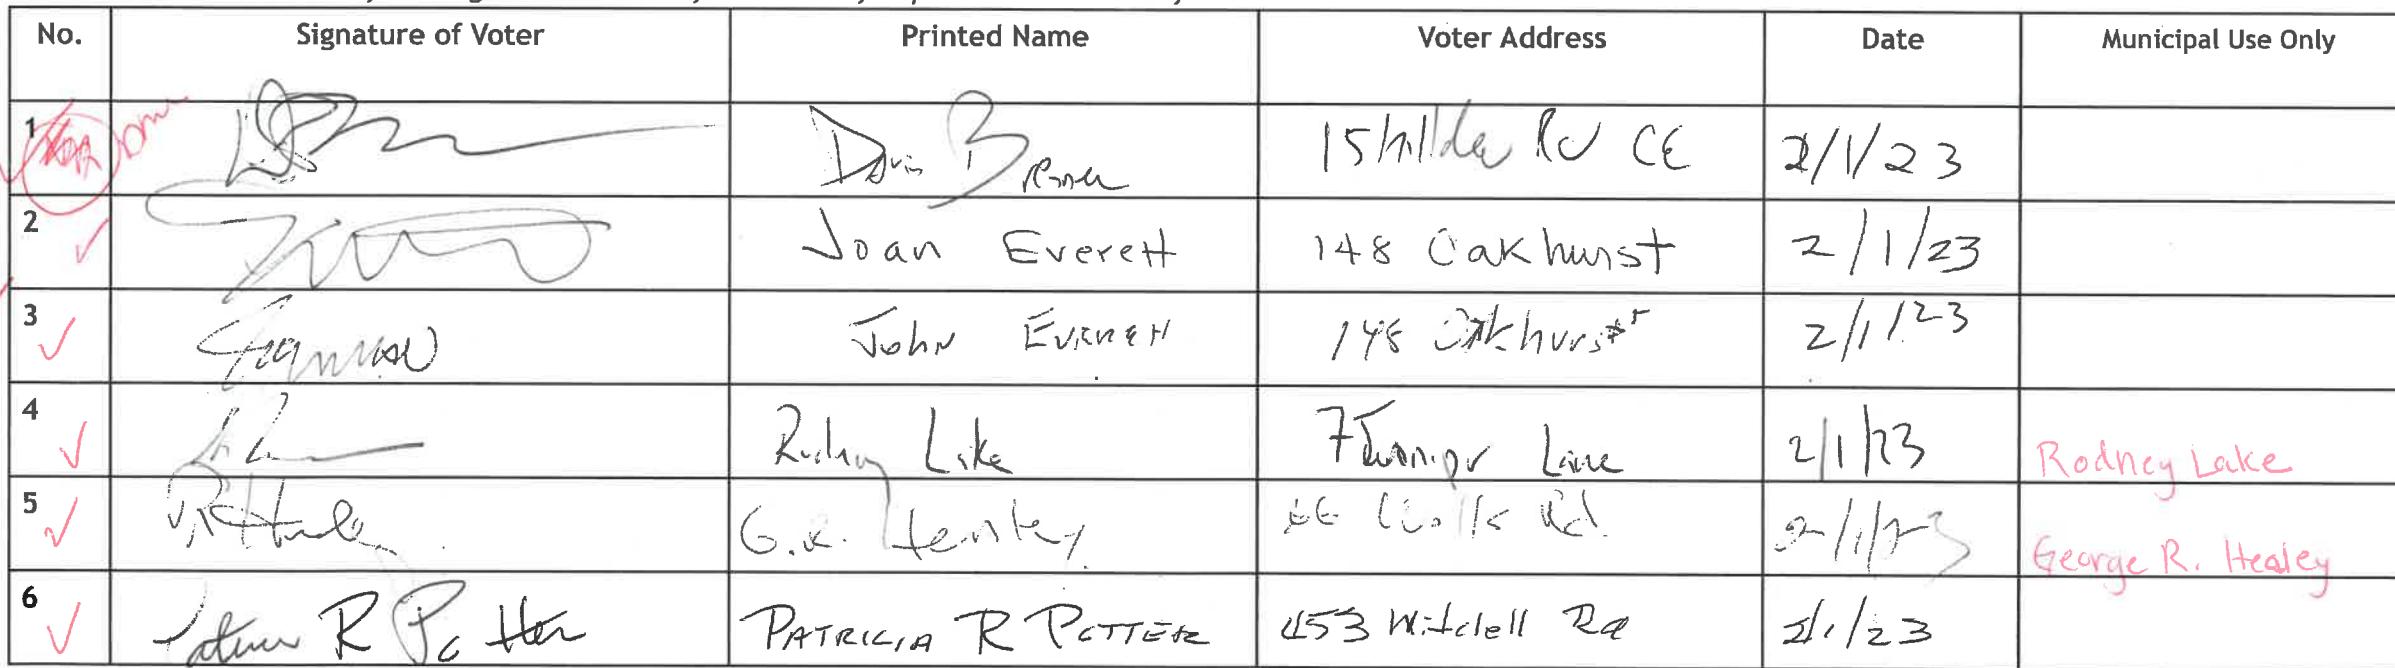 No. Signature of Voter Printed Name Voter Address Date Municipal Use Only
1 15 Rd CE 2/1/23
2 Joan Everett 148 Oakhurst 2/1/23
3 John Everett 148 Oakhurst 2/1/23
4 Rodney Lake 7 Lane 2/1/23 Rodney Lake
5 G.R. Rd. 2/1/23 George R. Healey
6 R Potter PATRICIA R POTTER 453 Mitchell Rd 2/1/23